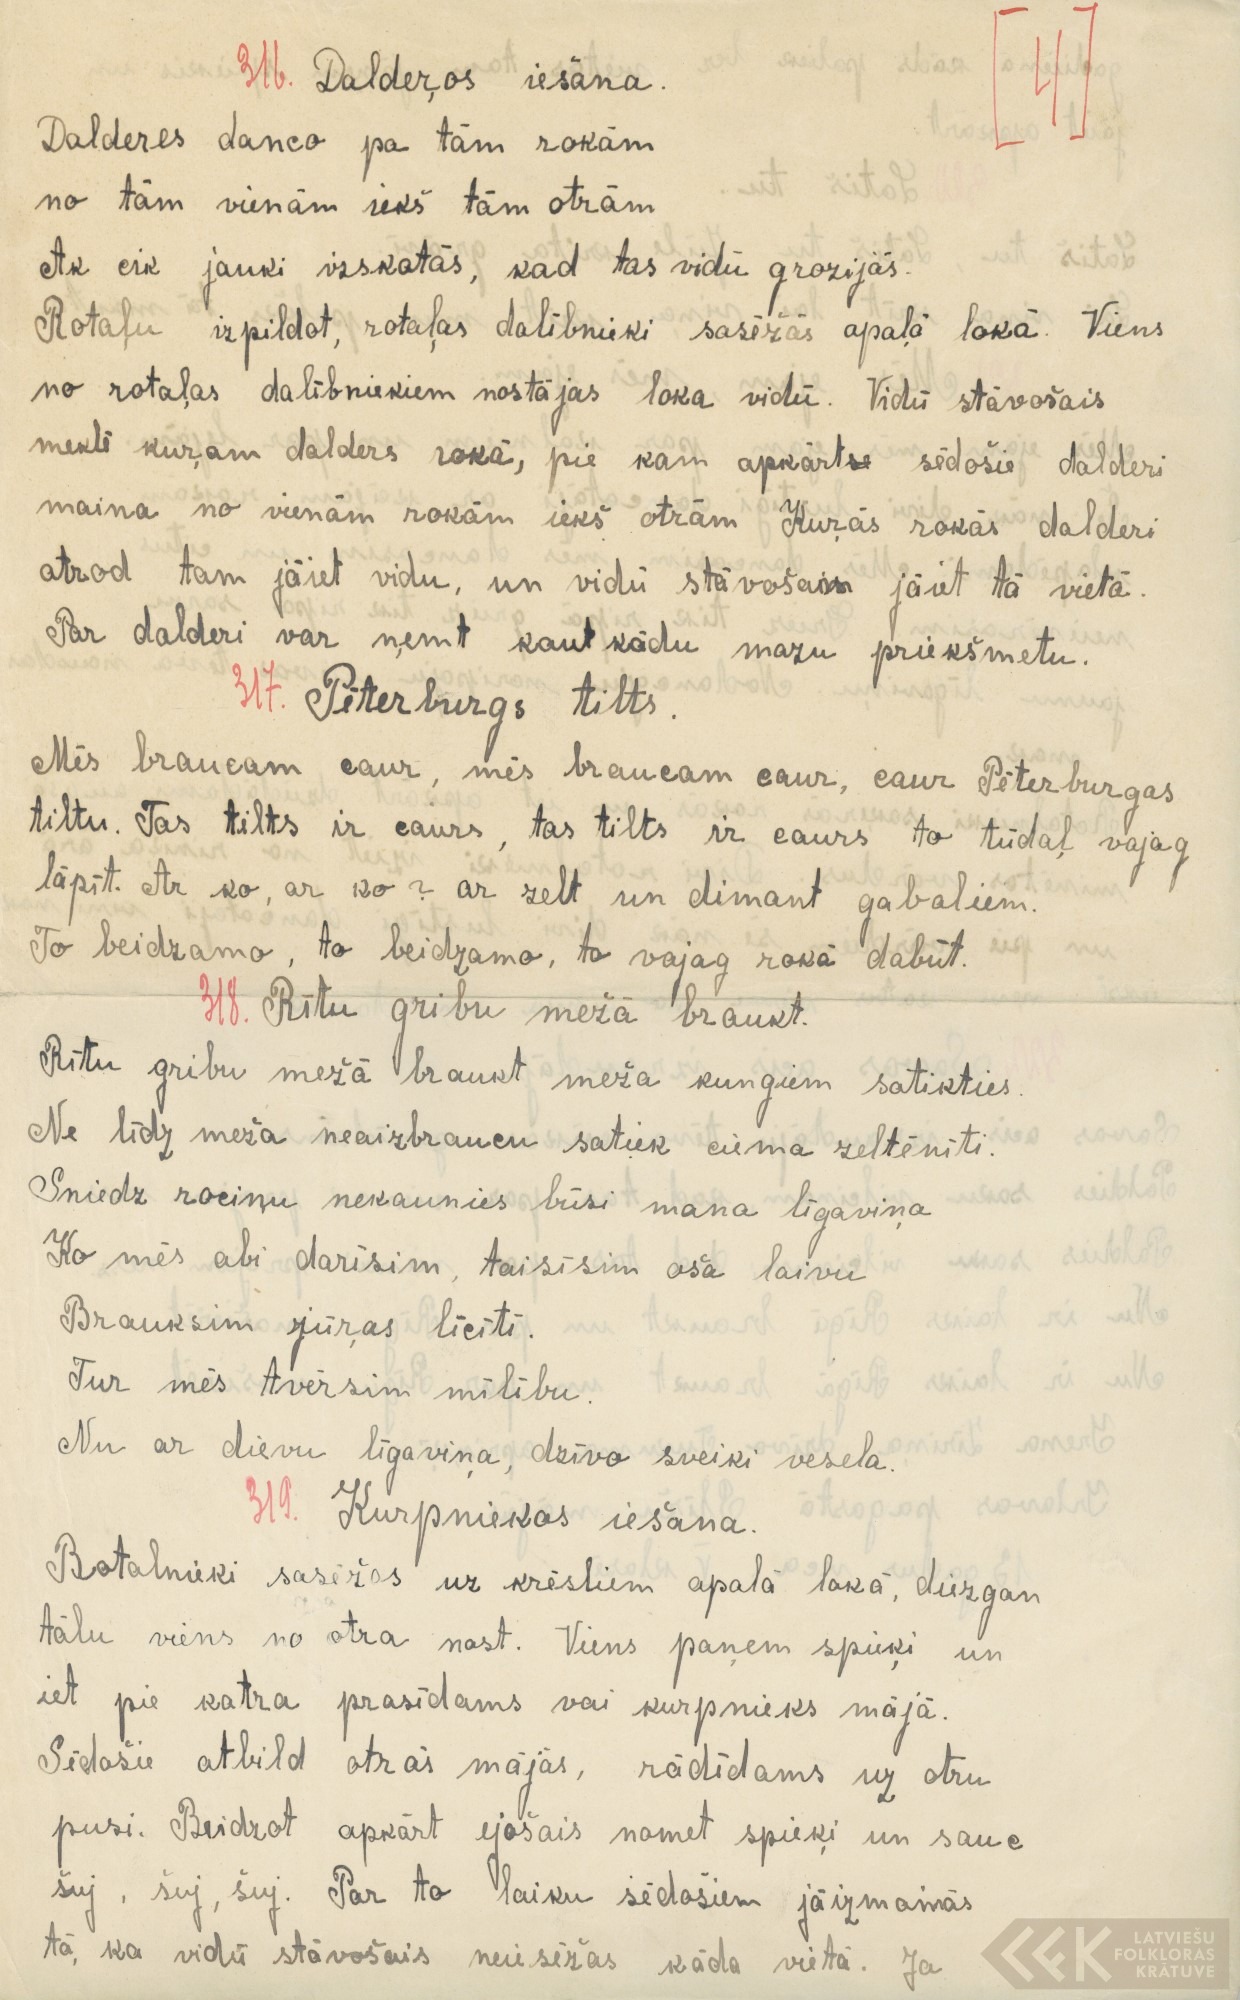 [4]
316. Daldeŗos iešana.
Dalderes danco pa tām rokām
no tām vienām iekš tām otrām
Ak cik jauki izskatās, kad tas vidū grozijās.
Rotaļu izpildot, rotaļas dalībnieki sasēžās apaļā lokā. Viens
no rotaļas dalībniekiem nostājas loka vidū. Vidū stāvošais
meklē kuŗam dalders rokā, pie kam apkārt sēdošie dalderi
maina no vienām rokām iekš otrām Kuŗās rokās dalderi
atrod tam jāiet vidu, un vidū stāvošam jāiet tā vietā.
Par dalderi var ņemt kaut kādu mazu priekšmetu.
317. Pēterburgs tilts.
Mēs braucam caur, mēs braucam caur, caur Pēterburgas
tiltu. Tas tilts ir caurs, tas tilts ir caurs to tūdaļ vajag
lāpīt. Ar ko, ar ko? ar zelt un dimant gabaliem.
To beidzamo, to beidzamo, to vajag rokā dabūt.
318. Rītu gribu mežā braukt.
Rītu gribu mežā braukt meža kungiem satikties.
Ne līdz meža neaizbraucu satiek ciema zeltenīti.
Sniedz rociņu nekaunies būsi mana līgaviņa
Ko mēs abi darīsim, taisīsim oša laivu
Brauksim jūŗas līcītī.
Tur mēs tvērsim mīlību.
Nu ar dievu līgaviņa, dzīvo sveiki vesela.
319. Kurpniekos iešana.
Rotalnieki sasēžas uz krēsliem apalā lokā, diezgan
tālu viens no otra nost. Viens paņem spieķi un
iet pie katra prasīdams vai kurpnieks mājā.
Sēdošie atbild otrās mājās, rādīdams uz otru
pusi. Beidzot apkārt ejošais nomet spieķi un sauc
šuj, šuj, šuj. Par to laiku sēdošiem jāizmainās
tā, ka vidū stāvošais neiesēžas kāda vietā. Ja
LATVIEŠU
FOLKLORAS
KRĀTUVE